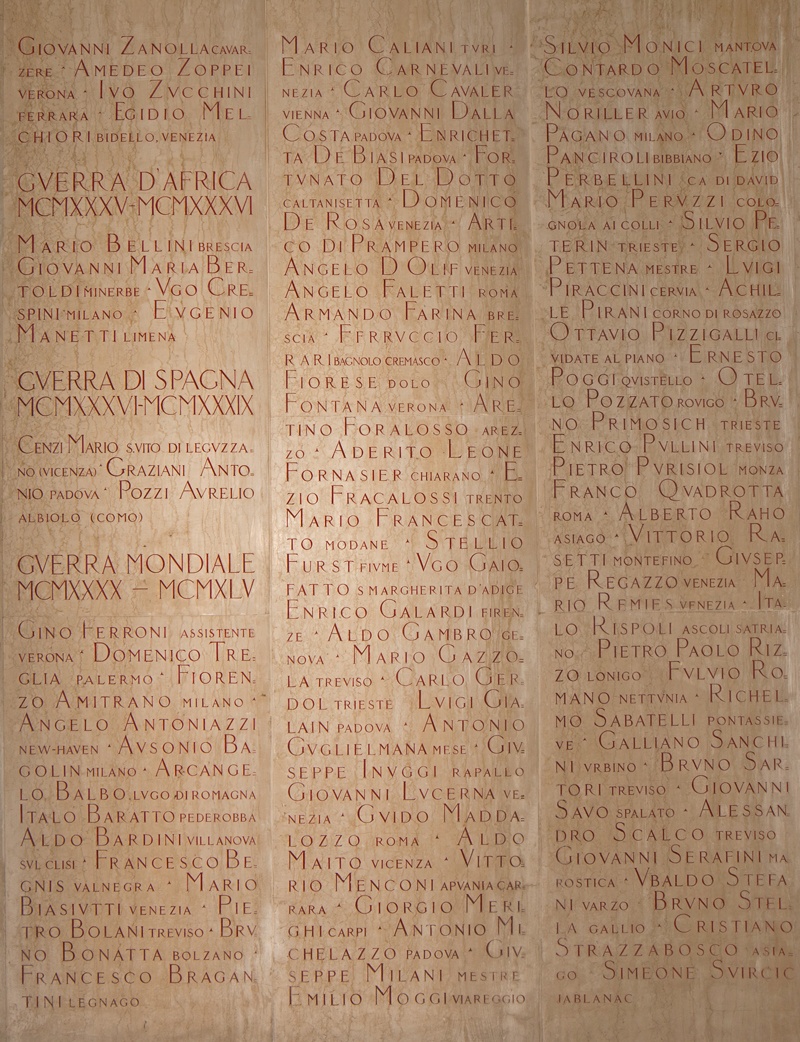 GIOVANNI ZANOLLA CAVAR=
ZERE · AMEDEO ZOPPEI
VERONA · IVO ZVCCHINI
FERRARA · EGIDIO MEL=
CHIORI BIDELLO, VENEZIA
GVERRA D'AFRICA
MCMXXXV-MCMXXXVI
MARIO BELLINI BRESCIA
GIOVANNI MARIA BER=
TOLDI MINERBE · VGO CRE=
SPINI MILANO · EVGENIO
MANETTI LIMENA
GVERRA DI SPAGNA
MCMXXXVI-MCMXXXIX
CENZI MARIO S.VITO DI LEGVZZA=
NO (VICENZA) · GRAZIANI ANTO=
NIO PADOVA · POZZI AVRELIO
ALBIOLO (COMO)
GVERRA MONDIALE
MCMXXXX – MCMXLV
GINO FERRONI ASSISTENTE
VERONA · DOMENICO TRE=
GLIA PALERMO · FIOREN=
ZO AMITRANO MILANO ·
ANGELO ANTONIAZZI
NEW-HAVEN · AVSONIO BA=
GOLIN MILANO · ARCANGE=
LO BALBO LVGO DI ROMAGNA
ITALO BARATTO PEDEROBBA
ALDO BARDINI VILLANOVA
SVL CLISI · FRANCESCO BE=
GNIS VALNEGRA · MARIO
BIASIVTTI VENEZIA · PIE=
TRO BOLANI TREVISO · BRV=
NO BONATTA BOLZANO ·
FRANCESCO BRAGAN=
TINI LEGNAGO
MARIO CALIANI TVRI ·
ENRICO CARNEVALI VE=
NEZIA · CARLO CAVALER=
VIENNA · GIOVANNI DALLA
COSTA PADOVA · ENRICHET=
TA DE BIASI PADOVA · FOR=
TVNATO DEL DOTTO
CALTANISETTA · DOMENICO
DE ROSA VENEZIA · ARTI=
CO DI PRAMPERO MILANO
ANGELO D'OLIF VENEZIA
ANGELO FALETTI ROMA
ARMANDO FARINA BRE=
SCIA · FERRVCCIO FER=
RARI BAGNOLO CREMASCO · ALDO
FIORESE DOLO · GINO
FONTANA VERONA · ARE=
TINO FORALOSSO AREZ=
ZO · ADERITO LEONE
FORNASIER CHIARANO · E=
ZIO FRACALOSSI TRENTO
MARIO FRANCESCAT=
TO MODANE · STELLIO
FURST FIVME · VGO GAIO=
FATTO S MARGHERITA D'ADIGE
ENRICO GALARDI FIREN=
ZE · ALDO GAMBRO GE=
NOVA · MARIO GAZZO=
LA TREVISO · CARLO GER=
DOL TRIESTE LVIGI GIA=
LAIN PADOVA · ANTONIO
GVGLIELMANA MESE · GIV=
SEPPE INVGGI RAPALLO
GIOVANNI LVCERNA VE=
NEZIA · GVIDO MADDA=
LOZZO ROMA · ALDO
MAITO VICENZA · VITTO=
RIO MENCONI APVANIA CAR=
RARA · GIORGIO MERI=
GHI CARPI · ANTONIO MI=
CHELAZZO PADOVA · GIV=
SEPPE MILANI MESTRE
EMILIO MOGGI VIAREGGIO
SILVIO MONICI MANTOVA
CONTARDO MOSCATEL=
LO VESCOVANA · ARTVRO
NORILLER AVIO · MARIO
PAGANO MILANO · ODINO
PANCIROLI BIBBIANO · EZIO
PERBELLINI CA DI DAVID
MARIO PERVZZI COLO=
GNOLA AI COLLI · SILVIO PE=
TERIN TRIESTE · SERGIO
PETTENA MESTRE · LVIGI
PIRACCINI CERVIA · ACHIL=
LE PIRANI CORNO DI ROSAZZO
OTTAVIO PIZZIGALLI CI=
VIDATE AL PIANO · ERNESTO
POGGI QVISTELLO · OTEL=
LO POZZATO ROVIGO · BRV=
NO PRIMOSICH TRIESTE
ENRICO PVLLINI TREVISO
PIETRO PVRISIOL MONZA
FRANCO QVADROTTA
ROMA · ALBERTO RAHO
ASIAGO · VITTORIO RA=
SETTI MONTEFINO · GIVSEP=
PE REGAZZO VENEZIA MA=
RIO REMIES VENEZIA · ITA=
LO RISPOLI ASCOLI SATRIA=
NO · PIETRO PAOLO RIZ=
ZO LONIGO FVLVIO RO=
MANO NETTVNIA · RICHEL=
MO SABATELLI PONTASSIE=
VE · GALLIANO SANCHI=
NI VRBINO · BRVNO SAR=
TORI TREVISO · GIOVANNI
SAVO SPALATO · ALESSAN=
DRO SCALCO TREVISO
GIOVANNI SERAFINI MA
ROSTICA · VBALDO STEFA
NI VARZO · BRVNO STEL=
LA GALLIO · CRISTIANO
STRAZZABOSCO ASIA=
GO · SIMEONE SVIRCIC
JABLANAC